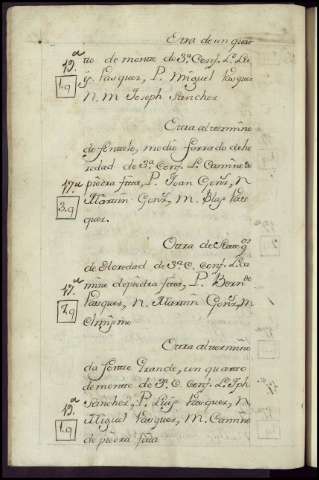 Otra de un quar
19.ª tto de monte de 3ª Conf. L. Lo
1.q y Vasquez, P. Miguel Vasquez
N. M Joseph Sanchez
Otra al termino
do fontelo, medio ferrado de he
redad de 3ª Conf. L. Camino de
17.ª piedra fita, P. Joan Gonz., N
3.q Martin Gonz, M. Blas Vaz
quez.
Otra de
de Heredad de 3ª C. Conf. L. Ca
17.ª mino de piedra fita, P. Bern.do
7.q Vasques, N. Martin Gonz, M
el mismo
Otra al termino
da fonte Grande, un quarto
de monte de 3ª C. Conf. L. Jph
19.ª Sanchez, P. Luis Vasquez, N
1.q Miguel Vasquez, M. Camino
de piedra fita